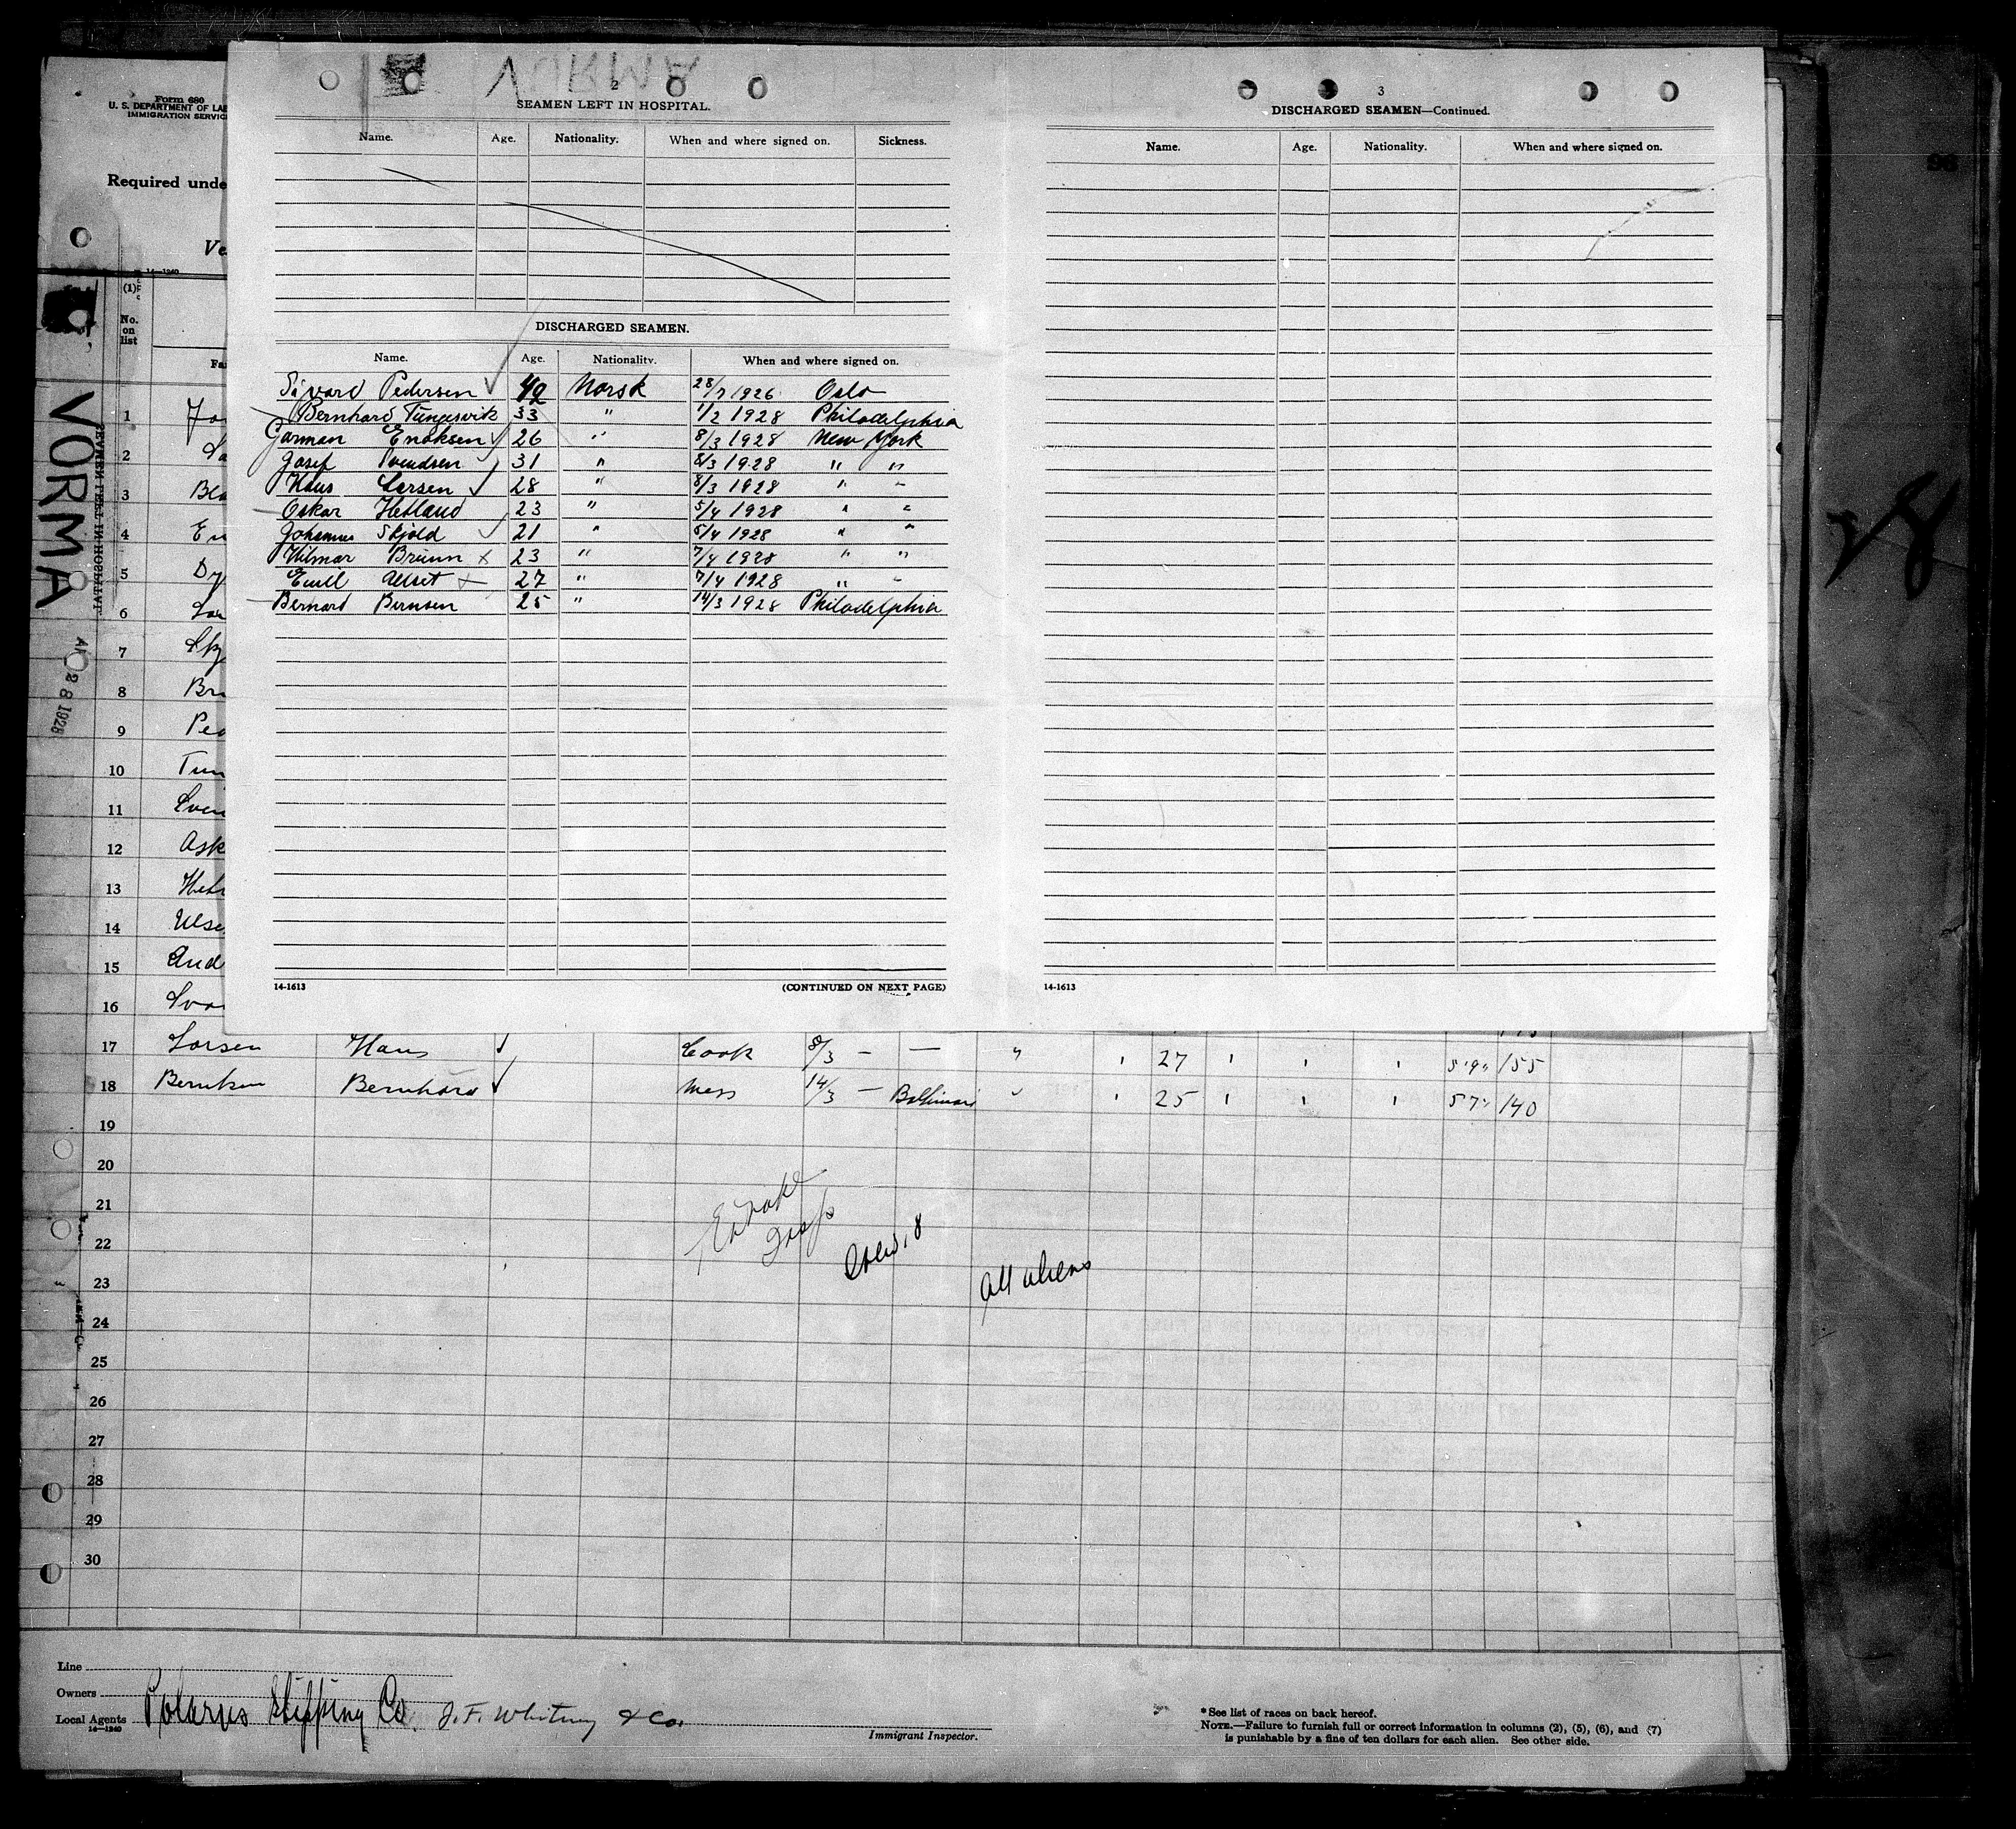 Form 680
U. S. DEPARTMENT OF LA
IMMIGRATION SERVIC
Required unde
Ve
14-1240
(1)
No.
on
list
Fa
VORMA
SEAMEN LEFT IN HOSPITAL.
28 1928
1
2
3 Bla
4
5 Dy
6
7
8 Bru
9 Ped
10 Tun
11 Sven
12 Ask
13 Het
14
15 And
16
2
SEAMEN LEFT IN HOSPITAL.
Name. Age. Nationality. When and where signed on. Sickness.
DISCHARGED SEAMEN.
Name. Age. Nationality. When and where signed on.
Sivard Pedersen 42 Norsk 28/7 1926 Oslo
Bernhard Tungesvik 33 " 1/2 1928 Philadelphia
Garman Enoksen 26 " 8/3 1928 New York
Josef Svendsen 31 " 8/3 1928 " "
Hans Larsen 28 " 8/3 1928 " "
Oskar Hetland 23 " 5/4 1928 " "
Johannes Skjold 21 " 5/4 1928 " "
Hilmar Bruun 23 " 7/4 1928 " "
Emil 27 " 7/4 1928 " "
Bernard Bernsen 25 " 14/3 1928 Philadelphia
14-1613 (CONTINUED ON NEXT PAGE)
3
DISCHARGED SEAMEN—Continued.
Name. Age. Nationality. When and where signed on.
14-1613
17 Larsen Hans Cook 8/3 — — " " 27 " " " 5'9" 155
18 Berntsen Bernhard Mess 14/3 — Baltimore " " 25 " " " 5 7" 140
19
20
21
22
23
24
25
26
27
28
29
30
Crew 18
All aliens
Line
Owners
Local Agents
14-1240
Polarus Shipping Co. J. F. Whitney & Co.
Immigrant Inspector.
* See list of races on back hereof.
NOTE.—Failure to furnish full or correct information in columns (2), (5), (6), and (7)
is punishable by a fine of ten dollars for each alien. See other side.
98